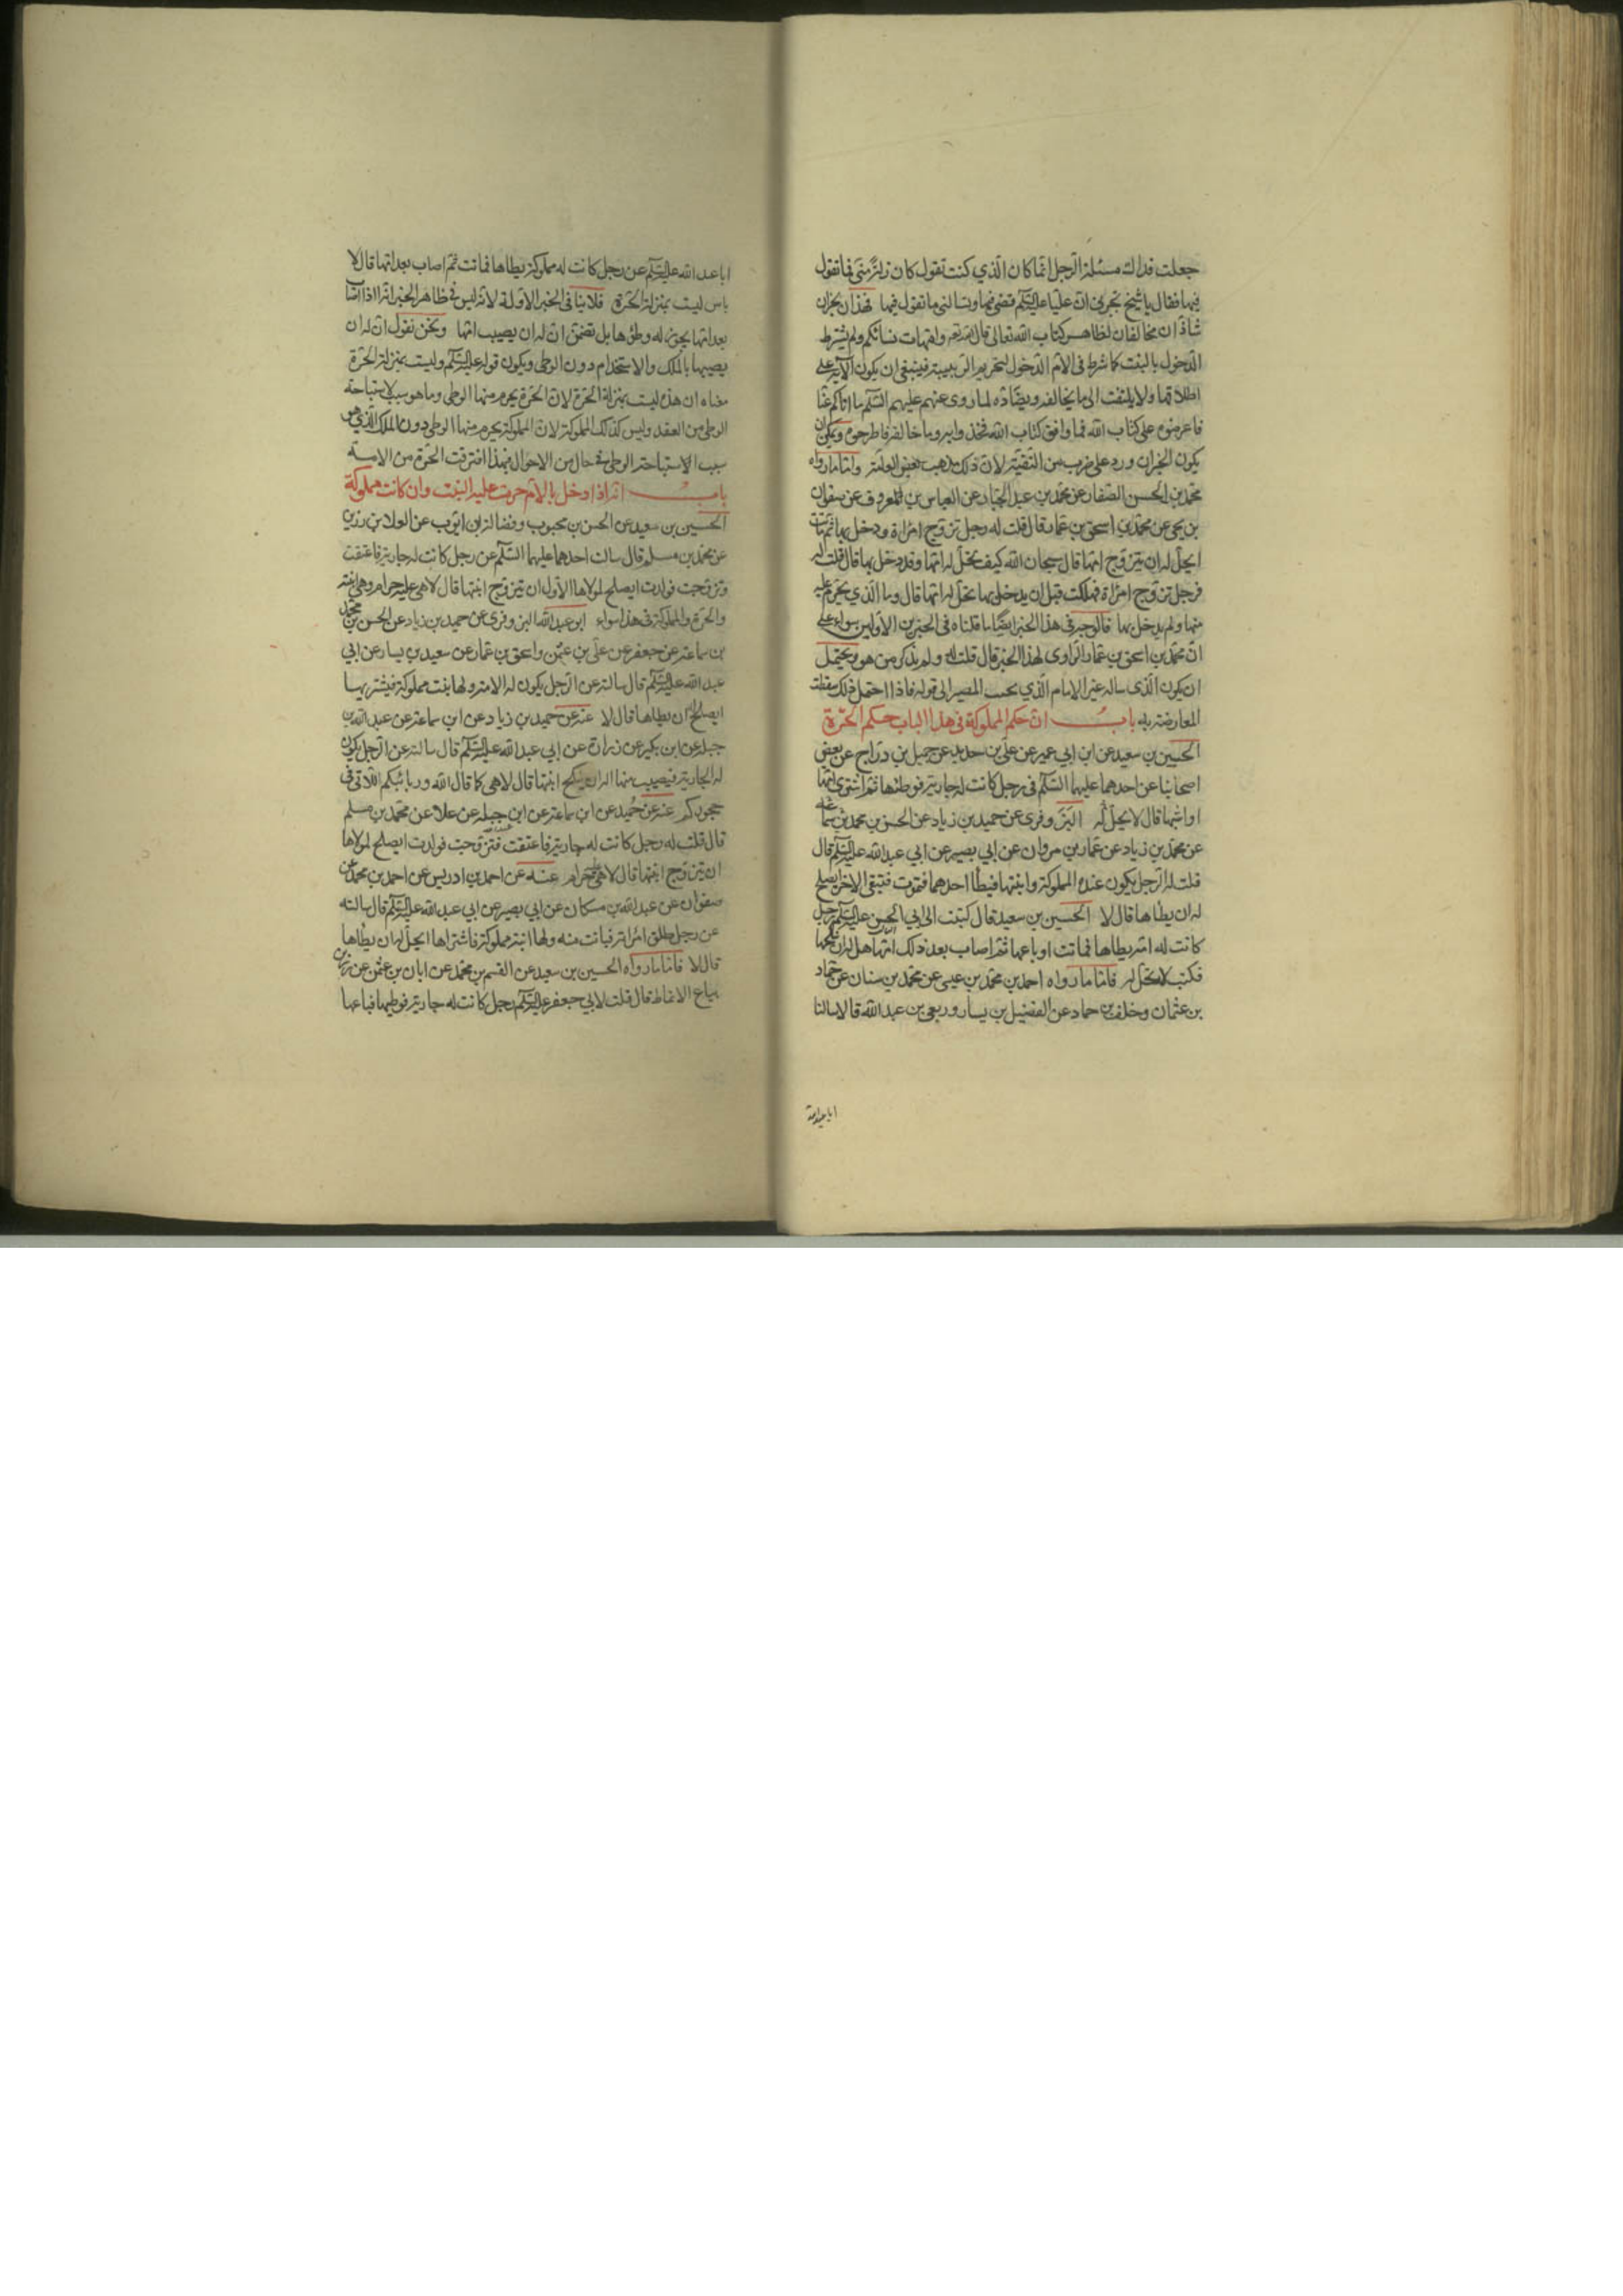 جعلت فداك مسئلة الرجل انما كان الذي كنت تقول كان زلة مني فما تقول
فيها فقال يا شيخ تخبرني ان عليا عليه السلم قضى فيها وتسالني ما تقول فيها فهذان الخبران
شاذان مخالفان لظاهر كتاب الله تعالى قال الله تعالى وامهات نسائكم ولم يشترط
الدخول بالبنت كما شرط في الام الدخول لتحريم الربيبة فينبغي ان يكون الآية على
اطلاقها ولا يلتفت الى ما يخالفه ويضاده لما روى عنهم عليهم السلم ما اتاكم عنا
فاعرضوه على كتاب الله فما وافق كتاب الله فخذوا به وما خالفه فاطرحوه ويمكن ان
يكون الخبران وردا على ضرب من التقية لان ذلك مذهب بعض العامة واما ما رواه
محمد بن الحسن الصفار عن محمد بن عبد الجبار عن العباس بن المعروف عن صفوان
بن يحيى عن محمد بن اسحق بن عمار قال قلت له رجل تزوج امراة ودخل بها ثم ماتت
ايحل له ان يتزوج امها قال سبحان الله كيف تحل له امها وقد دخل بها قال قلت له
فرجل تزوج امراة فهلكت قبل ان يدخل بها تحل له امها قال وما الذي يحرم عليه
منها ولم يدخل بها فالوجه في هذا الخبر ايضا ما قلناه في الخبرين الاولين سواء على
ان محمد بن اسحق بن عمار الراوي لهذا الخبر قال قلت له ولم يذكر من هو ويحتمل
ان يكون الذي ساله غير الامام الذي يجب المصير الى قوله فاذا احتمل ذلك سقطت
المعارضة به باب ان حكم المملوكة في هذا الباب حكم الحرة
الحسين بن سعيد عن ابن ابي عمير عن علي بن حديد عن جميل بن دراج عن بعض
اصحابنا عن احدهما عليهما السلم في رجل كانت له جارية فوطئها ثم اشترى امها
او ابنتها قال لا يحل له البزوفري عن حميد بن زياد عن الحسن بن محمد بن سماعة
عن محمد بن زياد عن عمار بن مروان عن ابي بصير عن ابي عبد الله عليه السلم قال
قلت له الرجل يكون عنده المملوكة وابنتها فيطأ احدهما فتموت فتبقى الاخرى ايصلح
له ان يطاها قال لا الحسين بن سعيد قال كتبت الى ابي الحسن عليه السلم رجل
كانت له امة يطاها فماتت او باعها ثم اصاب بعد ذلك امها هل له ان ينكحها
فكتب لا تحل له فاما ما رواه احمد بن محمد بن عيسى عن محمد بن سنان عن حماد
بن عثمان وخلف بن حماد عن الفضيل بن يسار وربعي بن عبد الله قالا سالنا
ابا عبد الله
ابا عبد الله عليه السلم عن رجل كانت له مملوكة يطاها فماتت ثم اصاب بعد امها قال لا
باس ليست بمنزلة الحرة فلا ينافي الخبر الاولة لانه ليس في ظاهر الخبر انه اذا اصاب
بعد امها يجوز له وطؤها بل تضمن ان له ان يصيب امها ونحن نقول ان له ان
يصيبها بالملك والاستخدام دون الوطى ويكون قوله عليه السلم وليست بمنزلة الحرة
معناه ان هذه ليست بمنزلة الحرة لان الحرة يحرم منها الوطى وما هو سبب لاستباحة
الوطى من العقد وليس كذلك المملوكة لان المملوكة يحرم منها الوطى دون الملك الذي هو
سبب الاستباحة الوطى في حال من الاحوال فبهذا افترقت الحرة من الامة
باب انه اذا دخل بالام حرمت عليه البنت وان كانت مملوكة
الحسين بن سعيد عن الحسن بن محبوب وفضالة بن ايوب عن العلا بن رزين
عن محمد بن مسلم قال سالت احدهما عليهما السلم عن رجل كانت له جارية فاعتقت
وتزوجت فولدت ايصلح لمولاها الاول ان يتزوج ابنتها قال لا هي عليه حرام وهي ابنته
والحرة والمملوكة في هذا سواء ابن عبد الله البزوفري عن حميد بن زياد عن الحسن بن محمد
بن سماعة عن جعفر عن علي بن عثمن واسحق بن عمار عن سعيد بن يسار عن ابي
عبد الله عليه السلم قال سالته عن الرجل يكون له الامة ولها بنت مملوكة فيشتريها
ايصلح له ان يطاها قال لا عنه عن حميد بن زياد عن ابن سماعة عن عبد الله بن
جبلة عن ابن بكير عن زرارة عن ابي عبد الله عليه السلم قال سالته عن الرجل يكون
له الجارية فيصيب منها اله ان ينكح ابنتها قال لا هي كما قال الله وربائبكم اللاتي في
حجوركم عنه عن حميد عن ابن سماعة عن ابن جبلة عن علا عن محمد بن مسلم
قال قلت له رجل كانت له جارية فاعتقت فتزوجت فولدت ايصلح لمولاها
ان يتزوج ابنتها قال لا هي عليه حرام عنه عن احمد بن ادريس عن احمد بن محمد عن
صفوان عن عبد الله بن مسكان عن ابي بصير عن ابي عبد الله عليه السلم قال سالته
عن رجل طلق امراته فبانت منه ولها ابنة مملوكة فاشتراها ايحل له ان يطاها
قال لا فاما ما رواه الحسين بن سعيد عن القسم بن محمد عن ابان بن عثمن عن رزين
بياع الانماط قال قلت لابي جعفر عليه السلم رجل كانت له جارية فوطيها فباعها